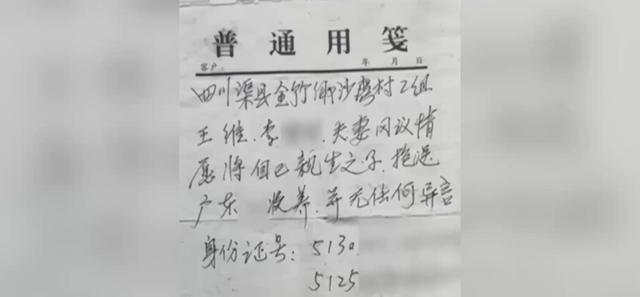 普通用笺
客户: 年 月 日
四川渠县金竹乡沙湾村2组
王维.李 .夫妻同议情
愿将自己亲生之子.抱送
广东 收养.并无任何异言
身份证号: 5130
5125